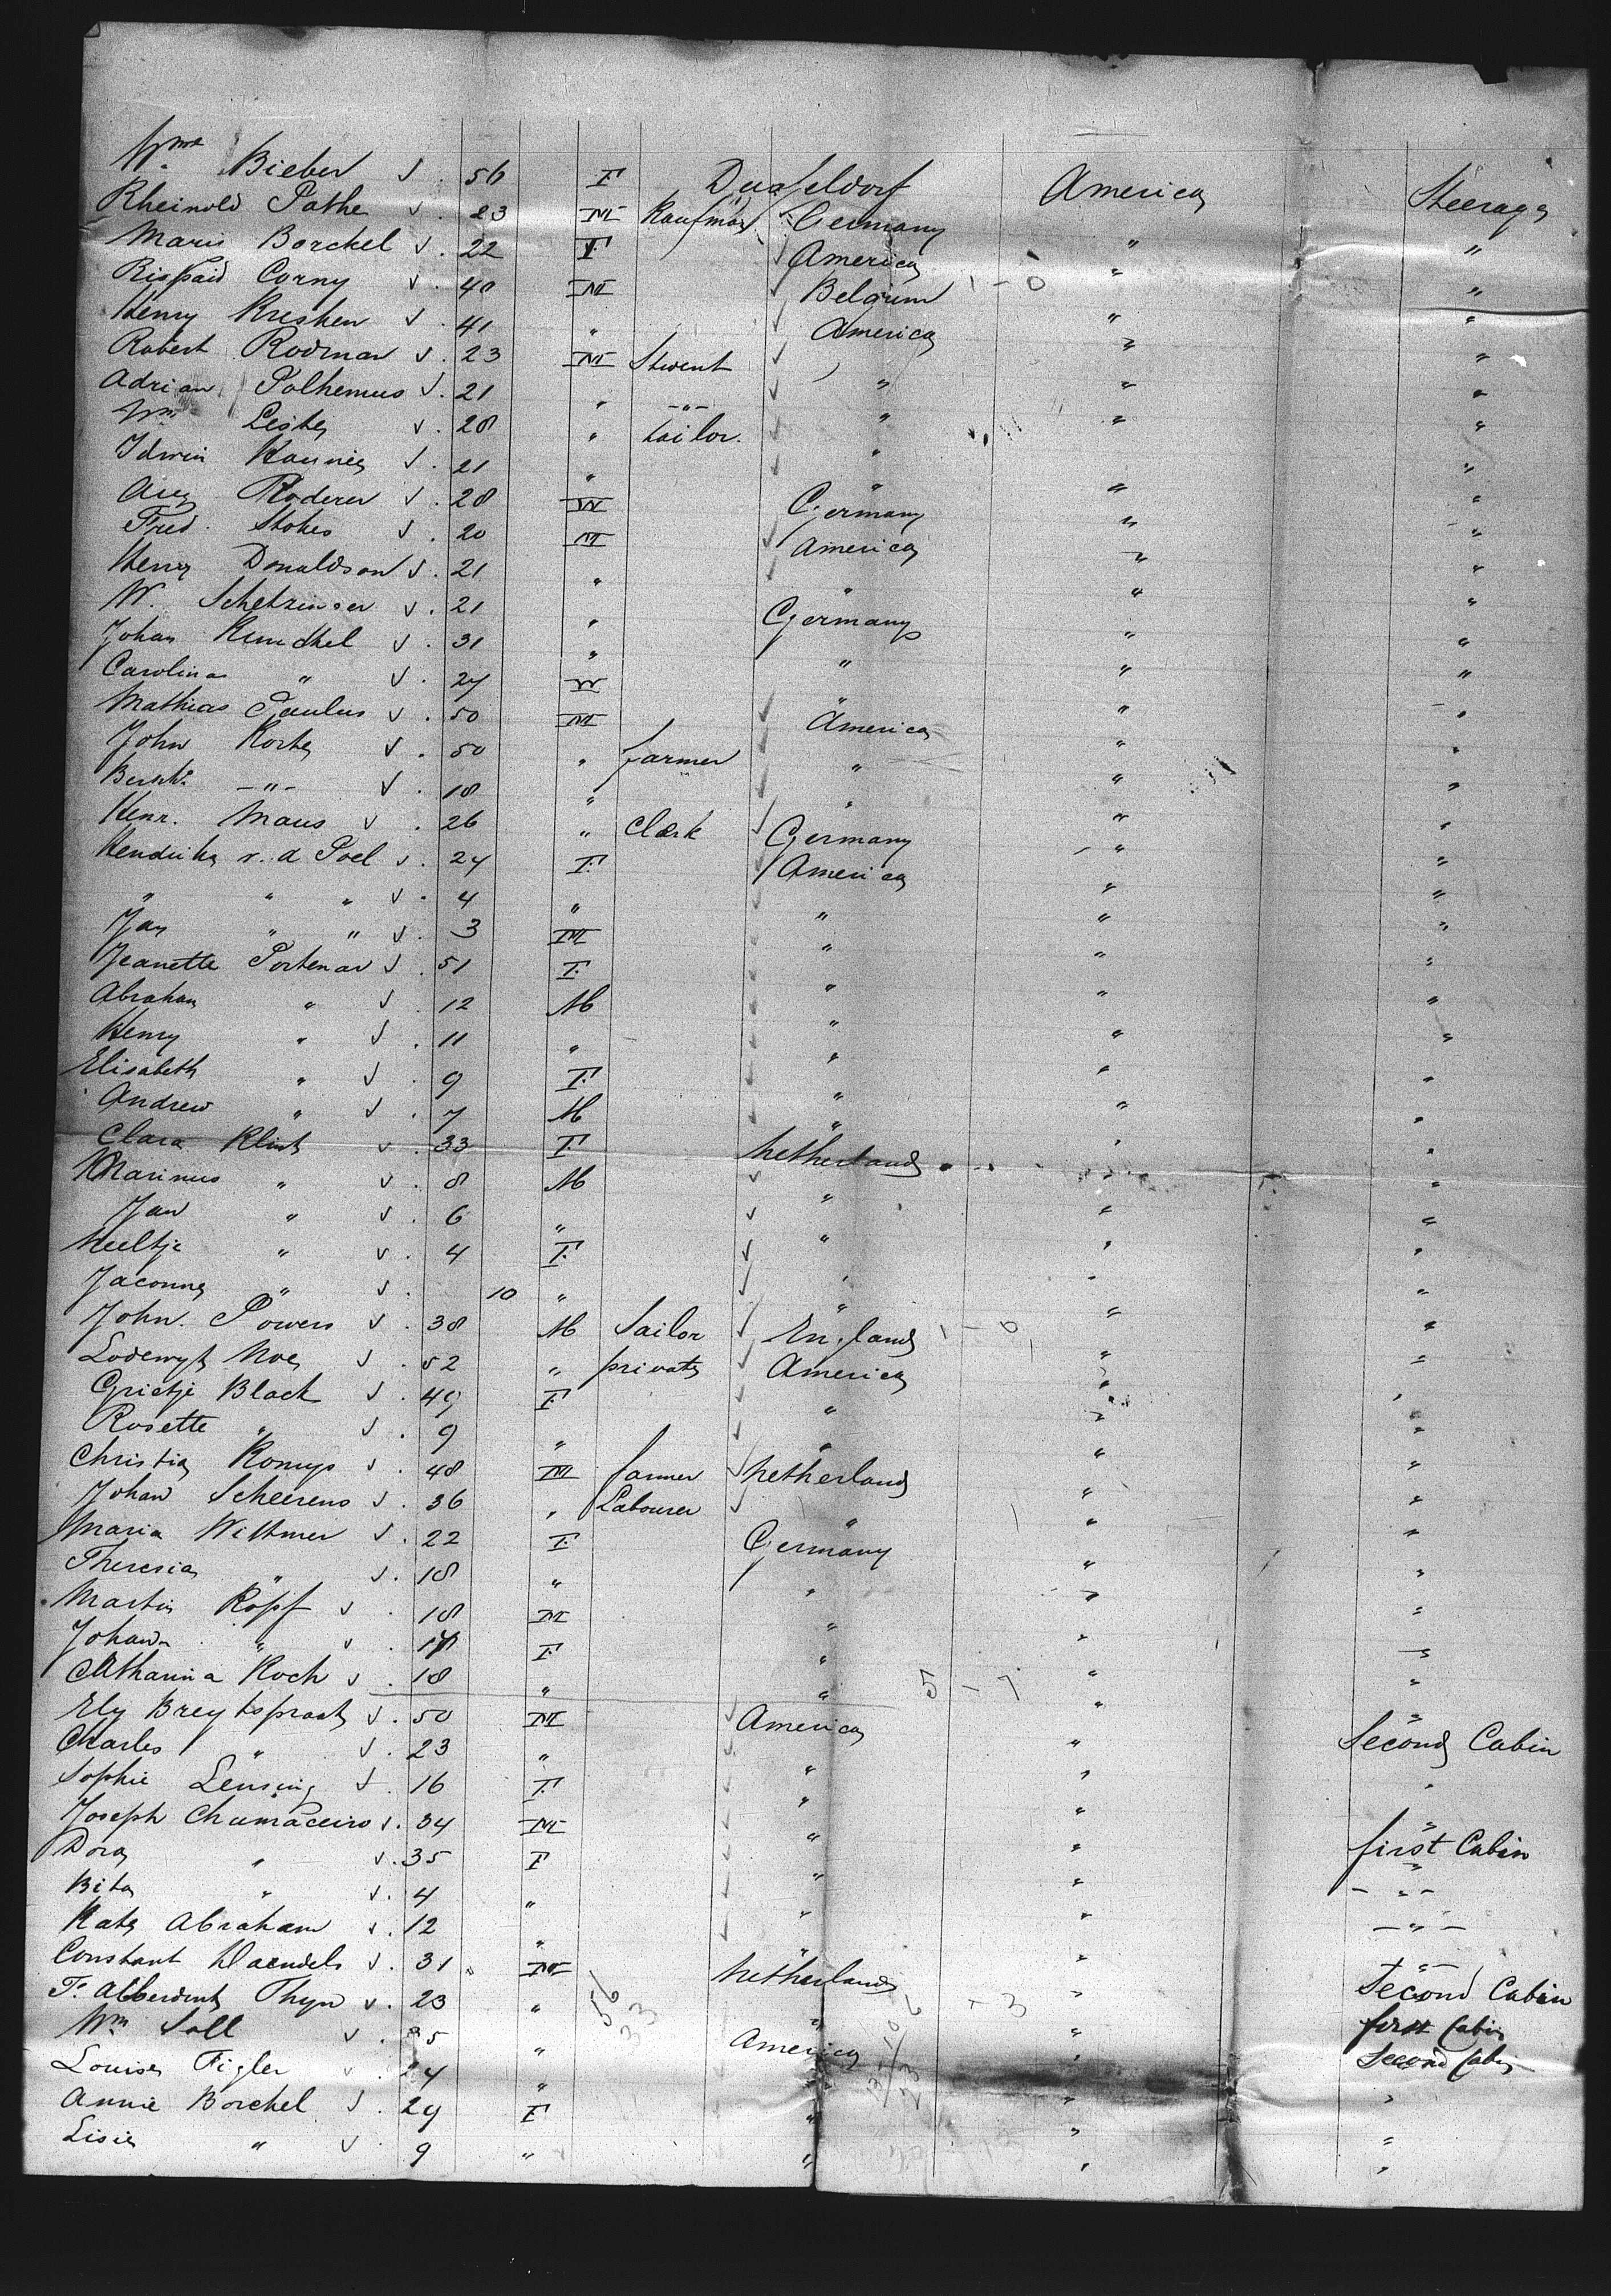 Wme Bieber √ . 56 F Dusseldorf America Steerage
Rheinold Pathe √ . 23 M Kaufman Germany " "
Marie Borckel √ . 22 F America " "
Corny √ . 40 M Belgium 1 - 0 " "
Henry Kresken √ . 41 " America " "
Robert Rodman √ . 23 M Student " " "
Adrian Polhemus √ . 21 " -"- " " "
Wm Leiste √ . 28 " tailor. " " "
√ . 21 " " " "
Aug Roderer √ . 28 M Germany " "
Fred. Stokes √ . 20 M America " "
Henry Donaldson √ . 21 " " " "
W. Schetzinger √ . 21 " Germany " "
Johan Kunckel √ . 31 " " " "
Carolina " √ . 27 " " "
Mathias Paulus √ . 50 M America " "
John Korte √ . 50 " farmer " " "
-"- √ . 18 " " " "
Henr. Maus √ . 26 " Clerk Germany " "
Hendrika v. d Poel √ . 24 F. America " "
" " " √ . 4 " " " "
Jan " " √ . 3 M " " "
Jeanette Portenar √ . 51 F. " " "
Abraham " √ . 12 M " " "
Henry " √ . 11 " " " "
Elisabeth " √ . 9 F. " " "
Andrew " √ . 7 M " " "
Clara Klint √ . 33 F Netherland " "
Marinus " √ . 8 M " " "
Jan " √ . 6 " " " "
Neeltje " √ . 4 F. " " "
" √ . 10 " " " "
John. Powers √ . 38 M Sailor England 1 - 0 " "
Lodewyk Moe √ . 52 " private America " "
Grietje Black √ . 49 F. " " "
Rosette " √ . 9 " " " "
Christia Romys √ . 48 M farmer Netherland " "
Johan Scheerens √ . 36 " Labourer " " "
Maria Wittmer √ . 22 F. Germany " "
Theresia " √ . 18 " " " "
Martin Kopf √ . 18 M " " "
Johan " √ . F. " " "
Catharina Koch √ . 18 " " 5 - 7 " "
Ely Breytspraak √ . 50 M America " Second Cabin
Charles " √ . 23 " " " "
Sophie Lensing √ . 16 F. " " "
Joseph Chumaceiro √ . 34 M " " first Cabin
Dora " √ . 35 F " " -"-
" √ . 4 " " " -"-
Kate Abraham √ . 12 " " " "
Constant Daendels √ . 31 " M Netherland " Second Cabin
Thyn √ . 23 " 56 33 " - 3 " first Cabin
Wm Soll √ . " America " Second Cabin
Louise Figler √ . 24 " " " "
Annie Borchel √ . 29 F " " "
Lisie " √ . 9 " " " "